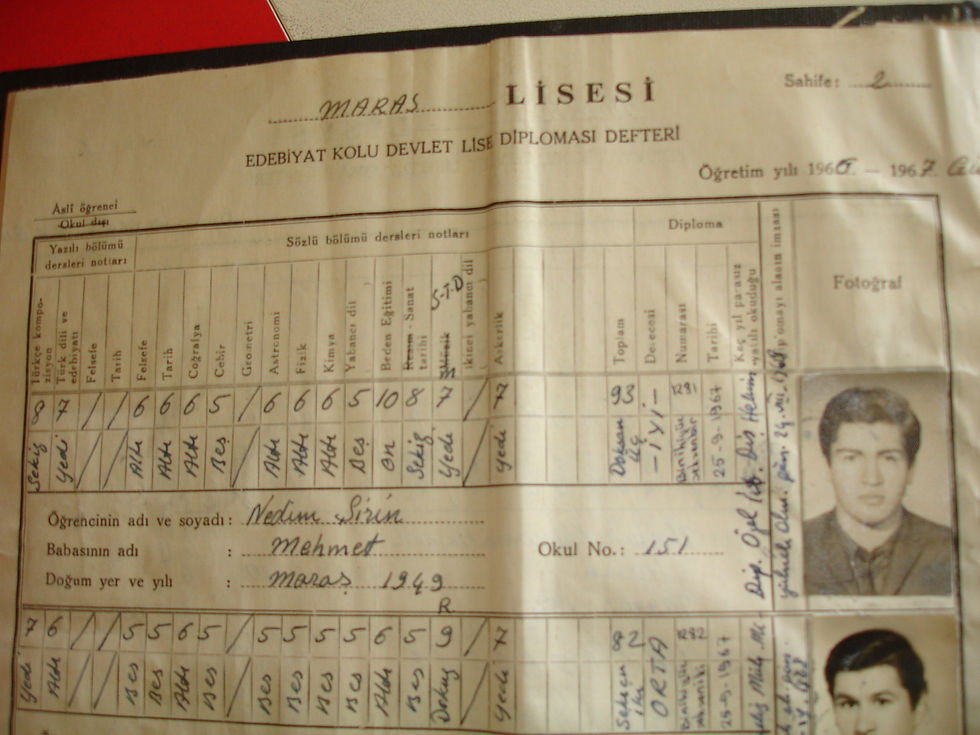 MARAŞ LİSESİ
Sahife: 2
EDEBİYAT KOLU DEVLET LİSE DİPLOMASI DEFTERİ
Öğretim yılı 1966 — 1967
Asli öğrenci
Okul dışı
Yazılı bölümü dersleri notları
Sözlü bölümü dersleri notları
Diploma
Fotoğraf
Türkçe kompozisyon
Türk dili ve edebiyatı
Felsefe
Tarih
Felsefe
Tarih
Coğrafya
Cebir
Geometri
Astronomi
Fizik
Kimya
Yabancı dil
Beden Eğitimi
Resim - Sanat tarihi
Müzik
S-T.D
ikinci yabancı dil
Askerlik
Toplam
Derecesi
Numarası
Tarihi
Kaç yıl parasız yatılı okuduğu
Diplomayı alanın imzası
8 7 / / 6 6 6 5 / 6 6 6 5 10 8 7 / 7 93 -İYİ- 1291 25-9-1967
Sekiz Yedi Altı Altı Altı Beş Altı Altı Altı Beş On Sekiz Yedi Yedi Doksan üç
Öğrencinin adı ve soyadı: Nedim Şirin
Babasının adı : Mehmet
Okul No.: 151
Doğum yer ve yılı : Maraş 1949
R
7 6 / / 5 5 6 5 / 5 5 5 5 6 5 9 / 7 82 ORTA 1292 25-9-1967
Yedi Altı Beş Beş Altı Beş Beş Beş Beş Beş Altı Beş Dokuz Yedi Seksen iki